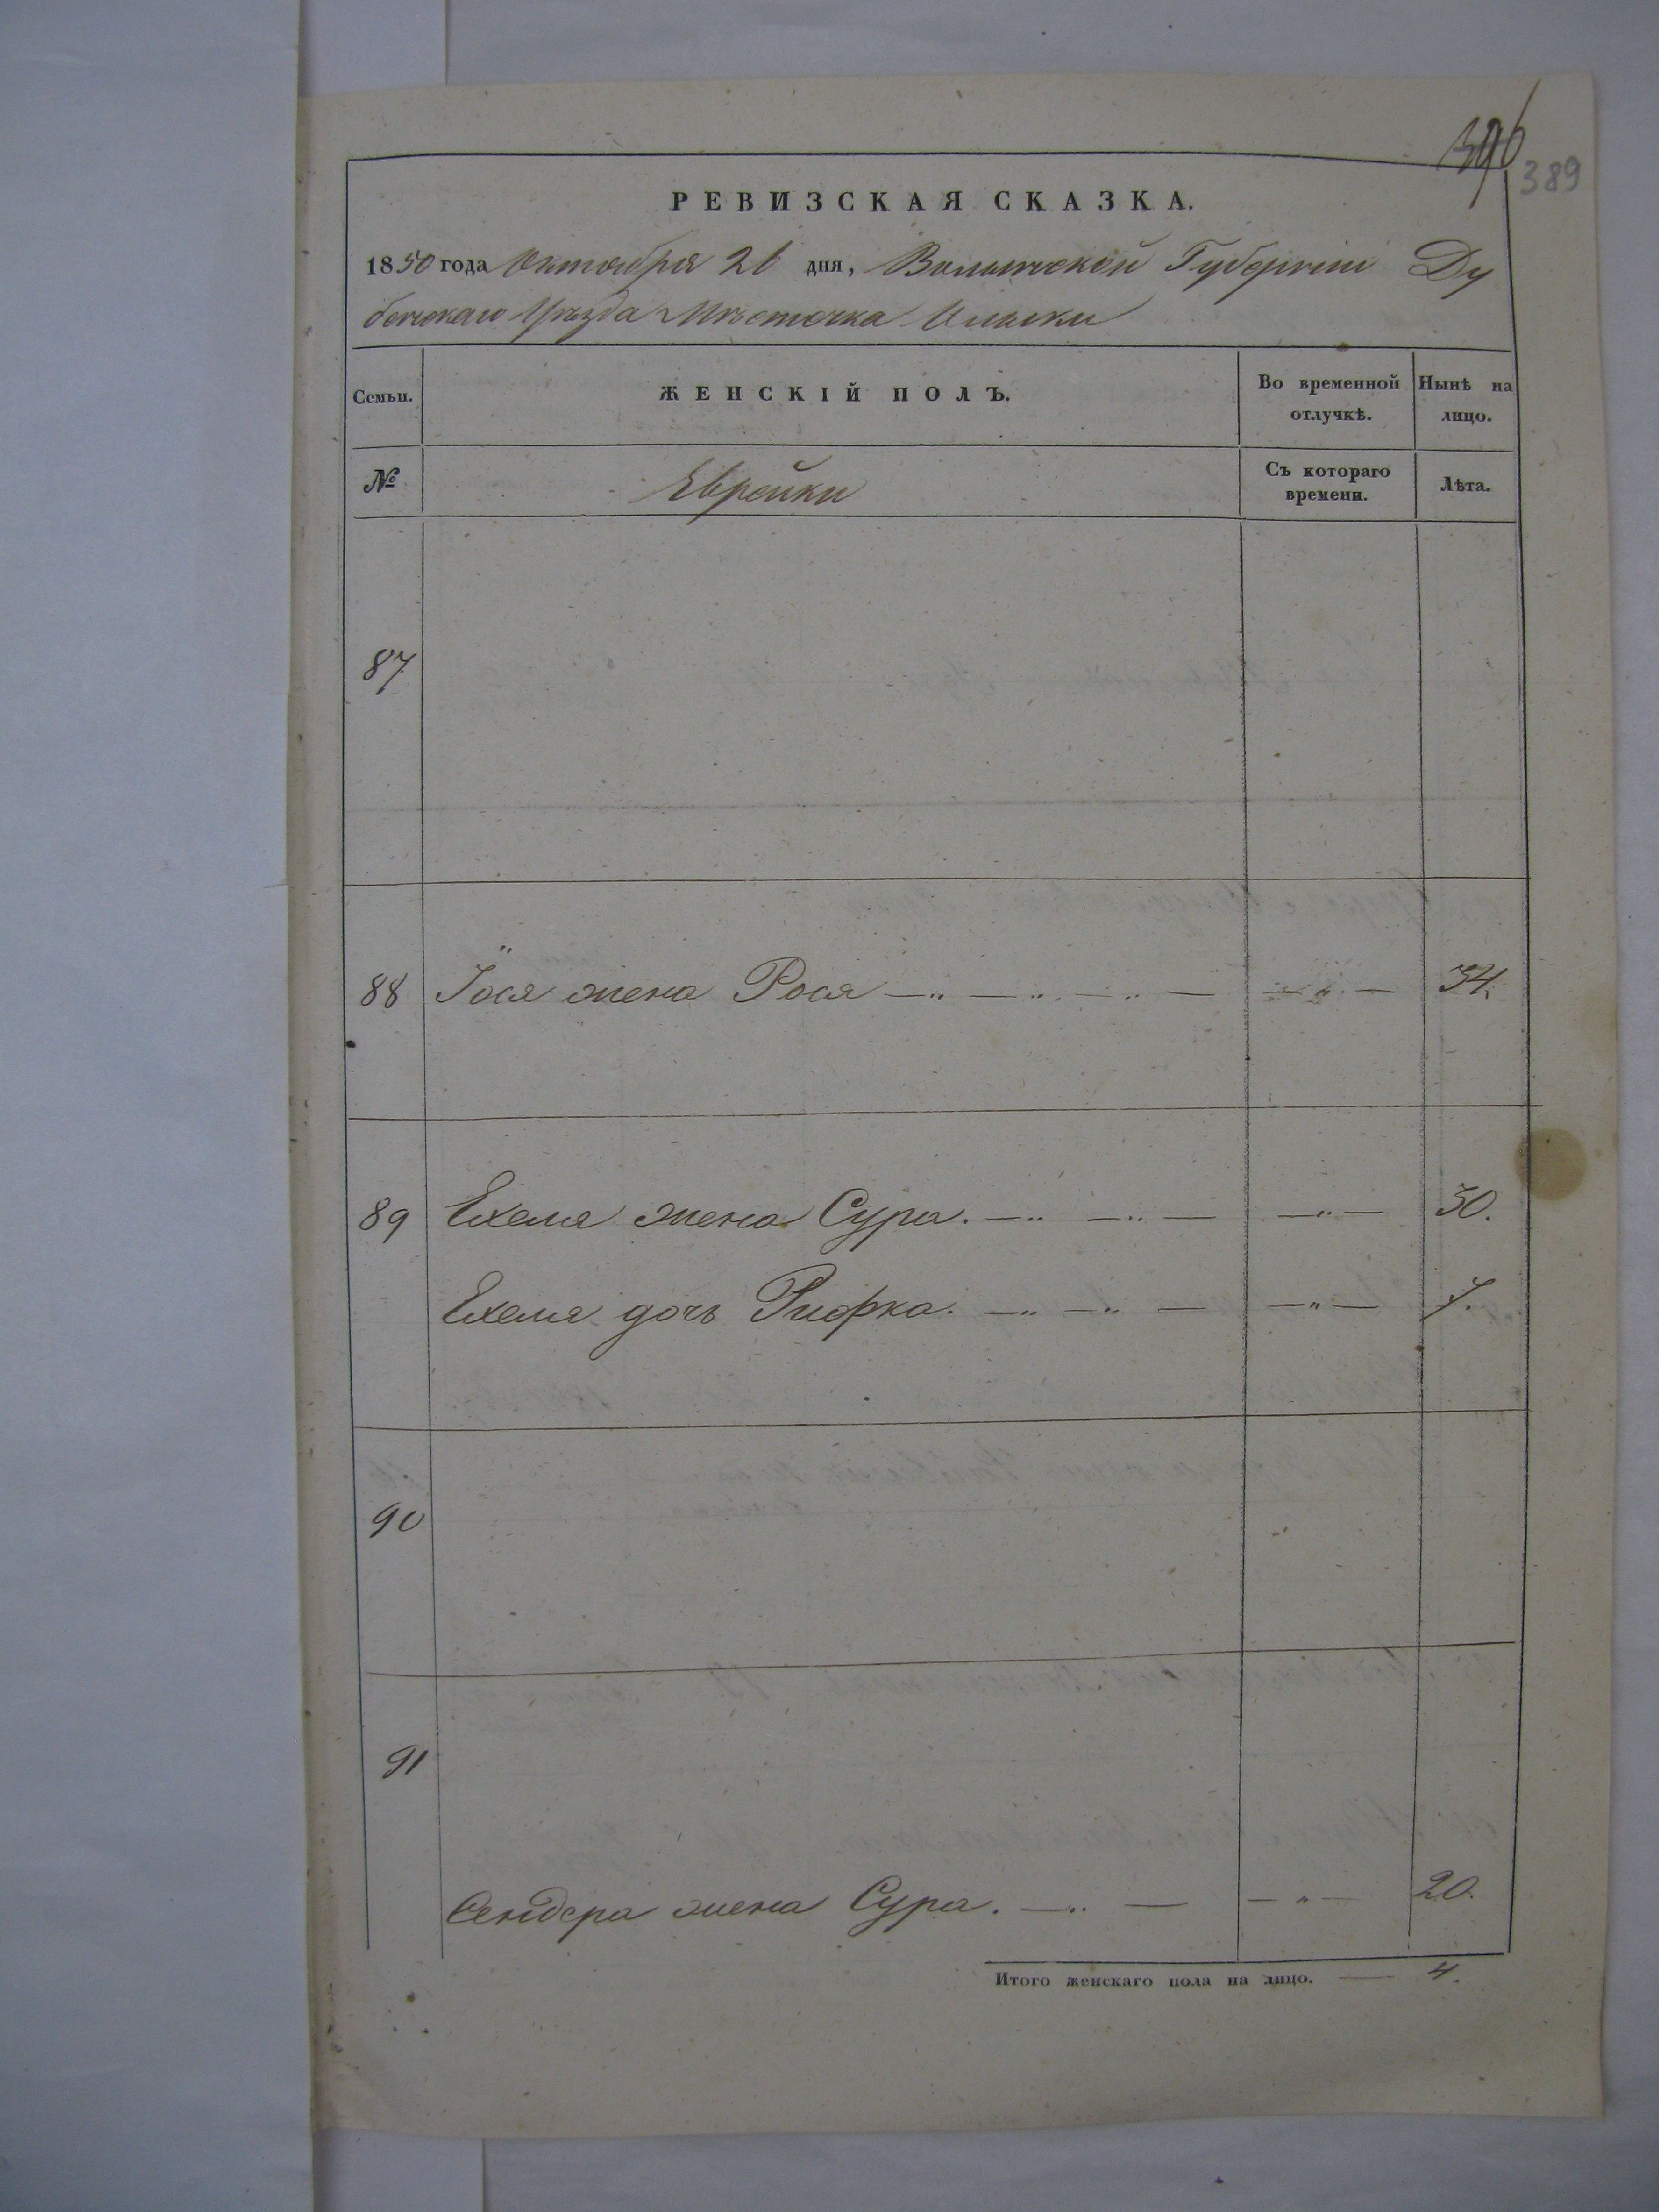 396
389
РЕВИЗСКАЯ СКАЗКА.
1850 года Октября 26 дня, Волынской Губерніи Ду
бенскаго Уѣзда Мѣстечка Олыки
Семьи. ЖЕНСКІЙ ПОЛЪ. Во временной отлучкѣ. Нынѣ на лицо.
№ Еврейки Съ котораго времени. Лѣта.
87
88 Іося жена Рося —„ —„ —„ — —„— 34.
89 Ехеля жена Сура. —„ —„ — —„— 30.
Ехеля дочь Рифка. —„ —„ — —„— 7.
90
91
Сендера жена Сура. —„ — —„— 20.
Итого женскаго пола на лицо. — 4.